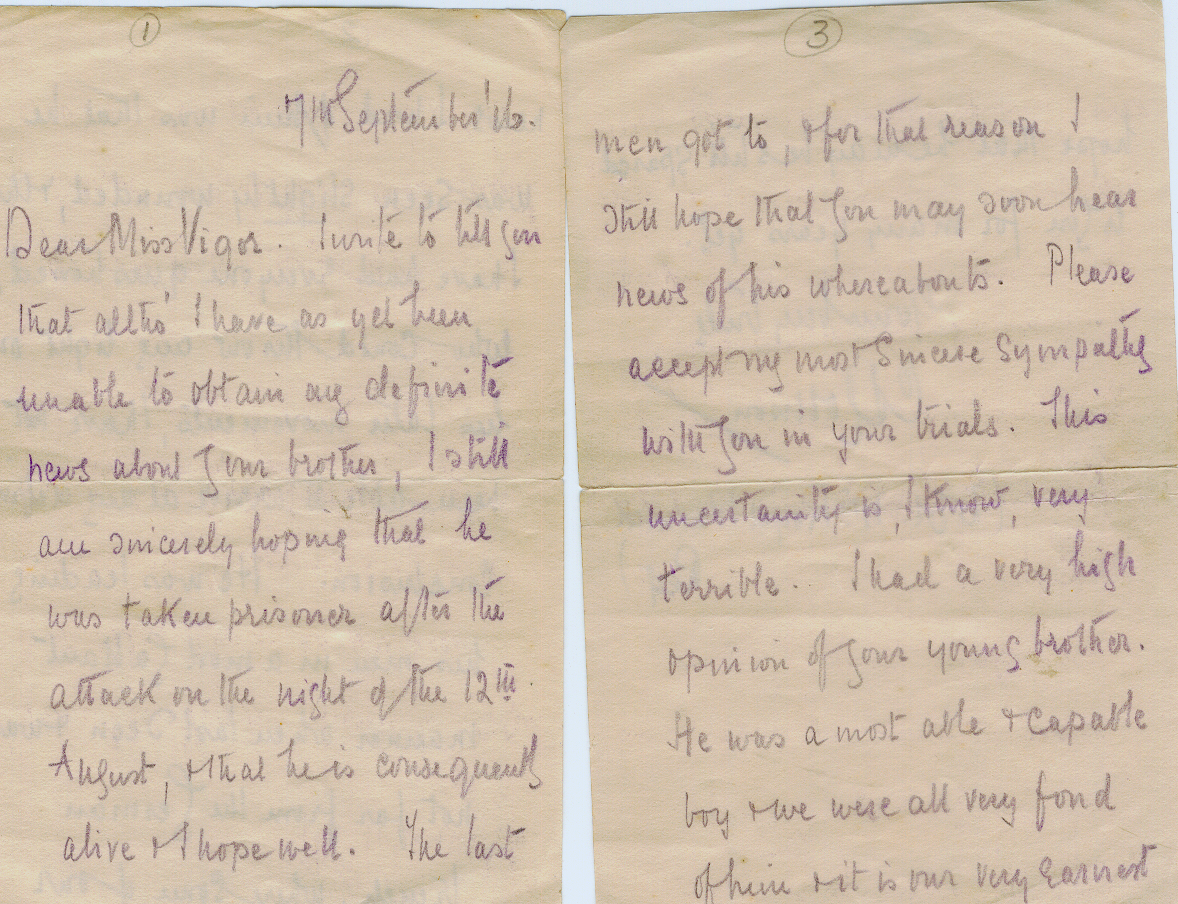 1
7th September '16.
Dear Miss Vigor. I write to tell you
that altho' I have as yet been
unable to obtain any definite
news about your brother, I still
am sincerely hoping that he
was taken prisoner after the
attack on the night of the 12th
August, & that he is consequently
alive & I hope well. The last
3
men got to, & for that reason I
still hope that you may soon hear
news of his whereabouts. Please
accept my most sincere sympathy
with you in your trials. This
uncertainity is, I know, very
terrible. I had a very high
opinion of your young brother.
He was a most able & capable
boy & we were all very fond
of him & it is our very earnest